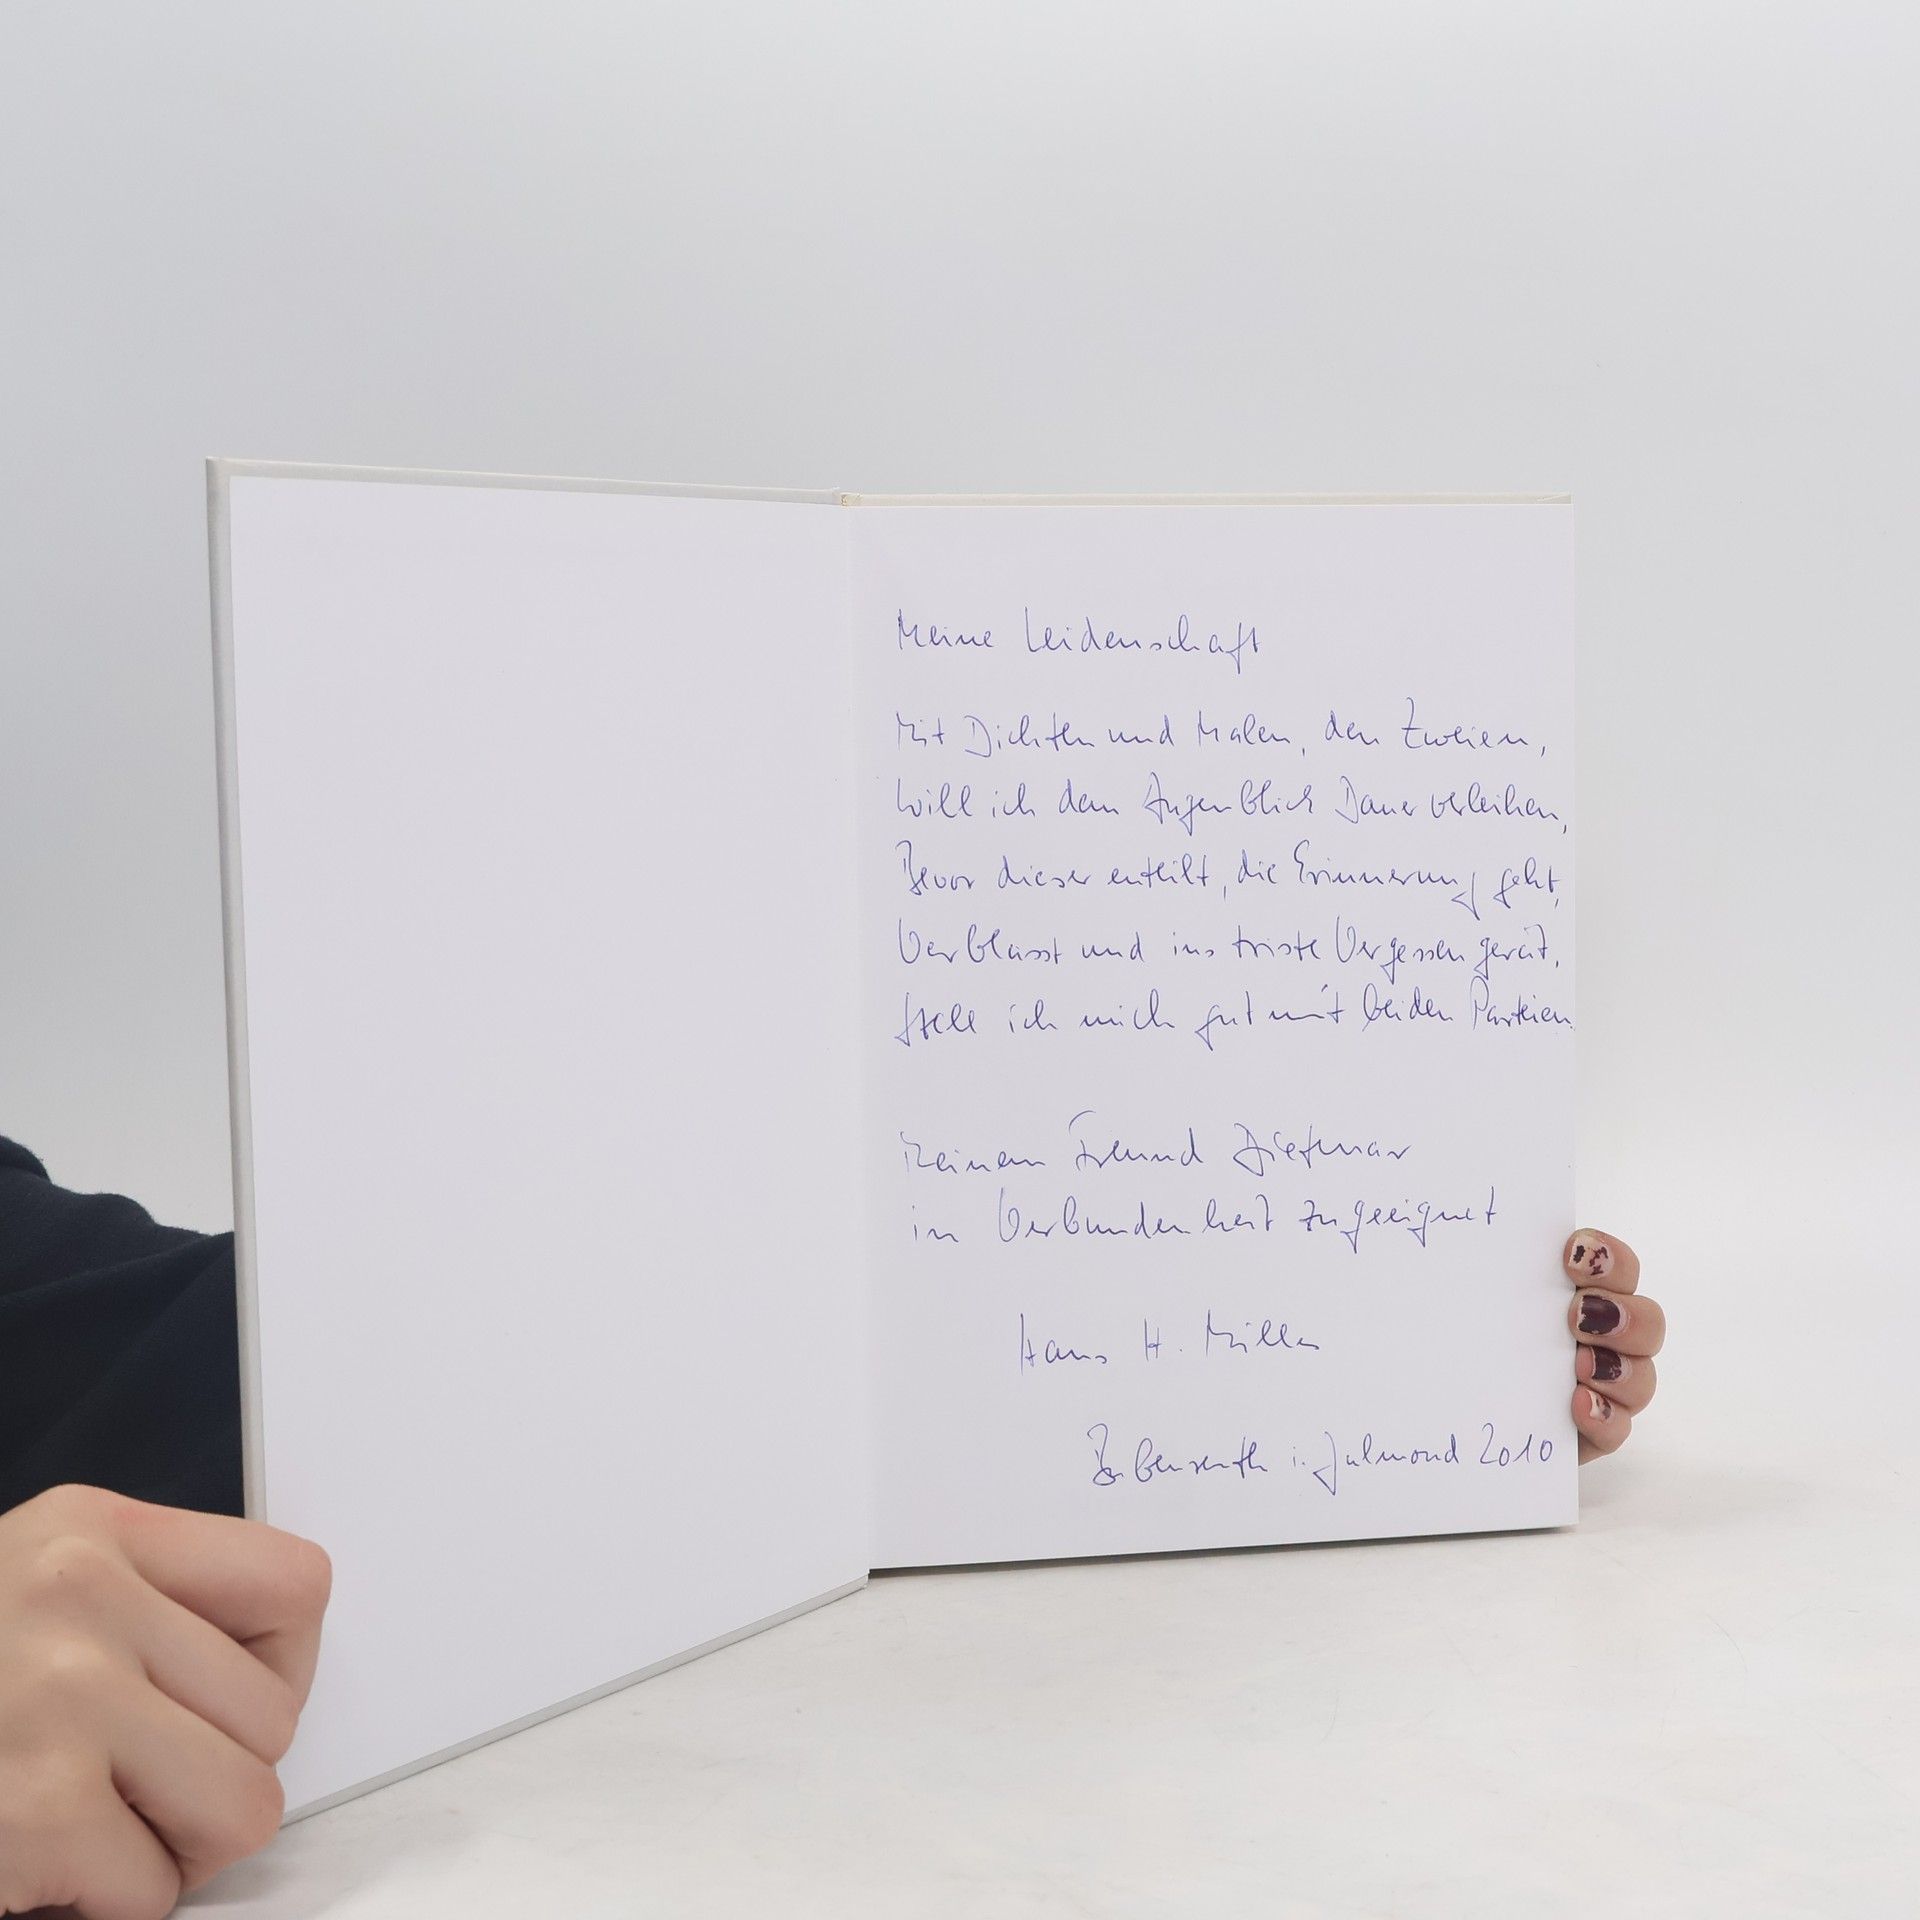 Meine Leidenschaft
Mit Dichten und Malen, den Zweien,
Will ich dem Augenblick Dauer verleihen,
Bevor dieser enteilt, die Erinnerung geht,
Verblasst und ins triste Vergessen gerät,
Stell ich mich gut mit beiden Parteien.
Meinem Freund Dietmar
in Verbundenheit zugeeignet
Hans H.
i. Julmond 2010